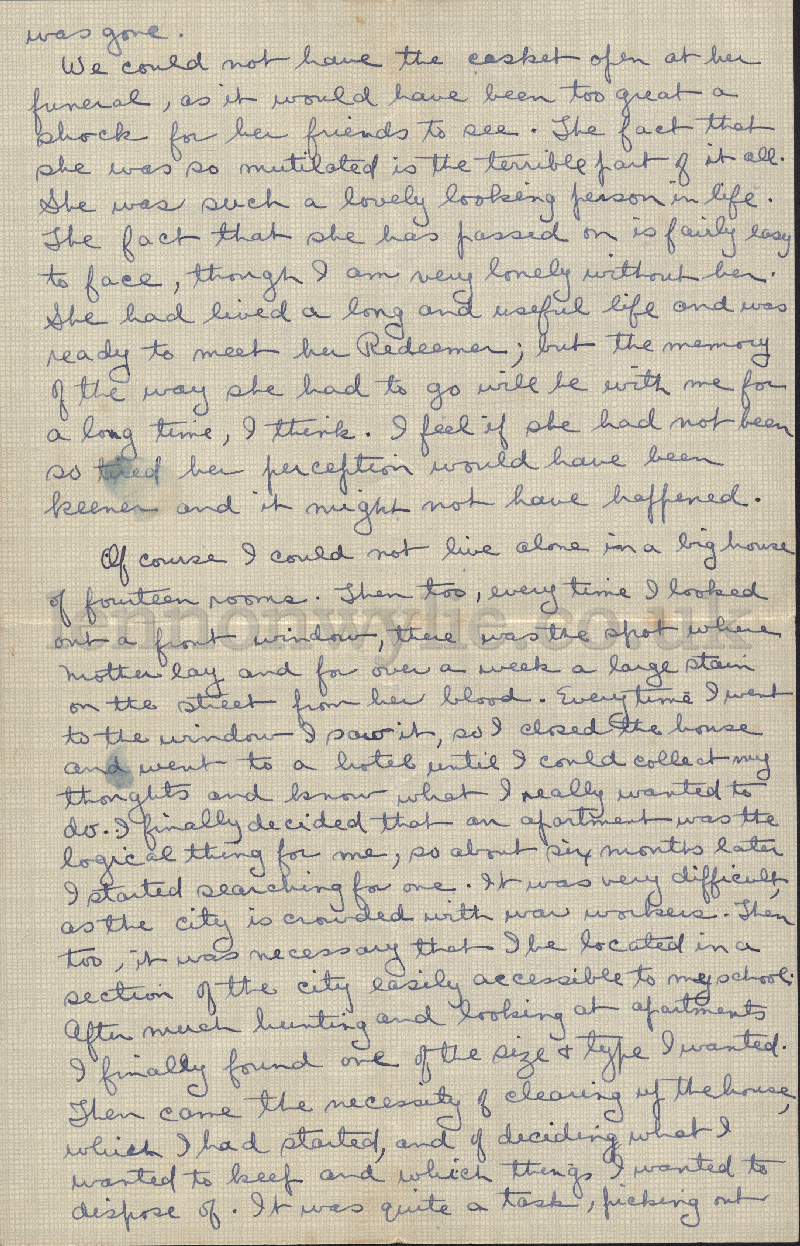 was gone.
We could not have the casket open at her
funeral, as it would have been too great a
shock for her friends to see. The fact that
she was so mutilated is the terrible part of it all.
She was such a lovely looking person in life.
The fact that she has passed on is fairly easy
to face, though I am very lonely without her.
She had lived a long and useful life and was
ready to meet her Redeemer; but the memory
of the way she had to go will be with me for
a long time, I think. I feel if she had not been
so tired her perception would have been
keener and it might not have happened.
Of course I could not live alone in a big house
of fourteen rooms. Then too, every time I looked
lennonwylie.co.uk
out a front window, there was the spot where
Mother lay and for over a week a large stain
on the street from her blood. Everytime I went
to the window I saw it, so I closed the house
and went to a hotel until I could collect my
thoughts and know what I really wanted to
do. I finally decided that an apartment was the
logical thing for me, so about six months later
I started searching for one. It was very difficult,
as the city is crowded with war workers. Then
too, it was necessary that I be located in a
section of the city easily accessible to my school.
After much hunting and looking at apartments
I finally found one of the size & type I wanted.
Then came the necessity of clearing up the house,
which I had started, and of deciding what I
wanted to keep and which things I wanted to
dispose of. It was quite a task, picking out